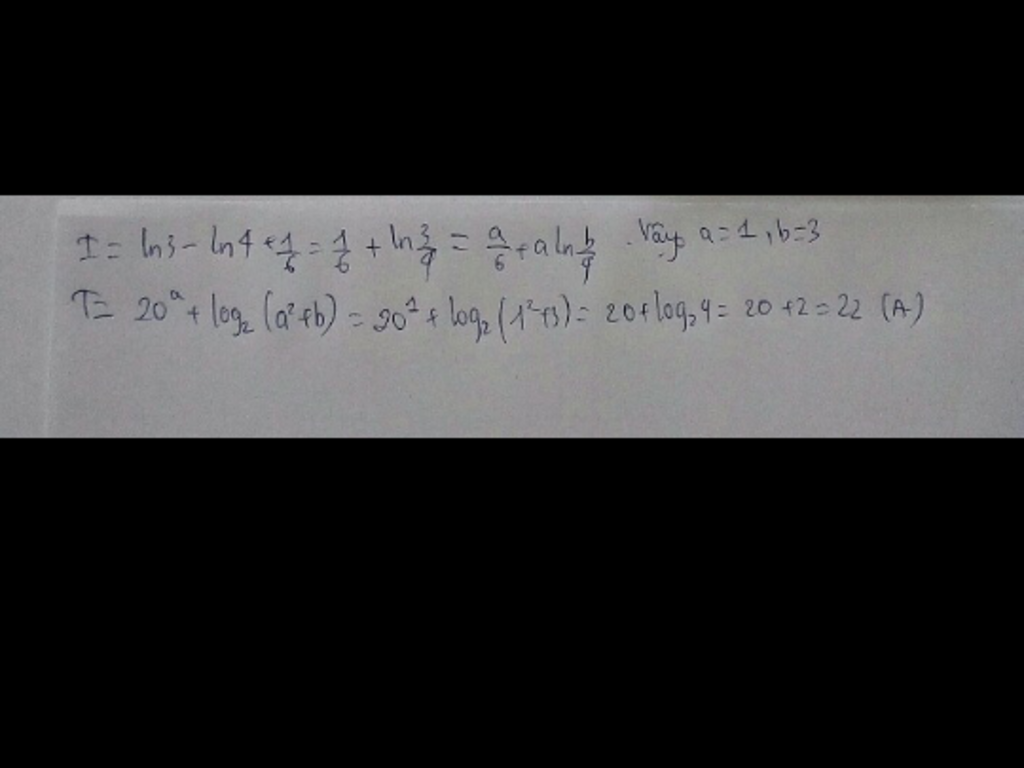 I = ln3 - ln4 + 1/6 = 1/6 + ln 3/4 = a/6 + a ln b/4 . Vậy a = 1, b = 3
T = 20^a + log₂(a² + b) = 20^1 + log₂(1² + 3) = 20 + log₂4 = 20 + 2 = 22 (A)